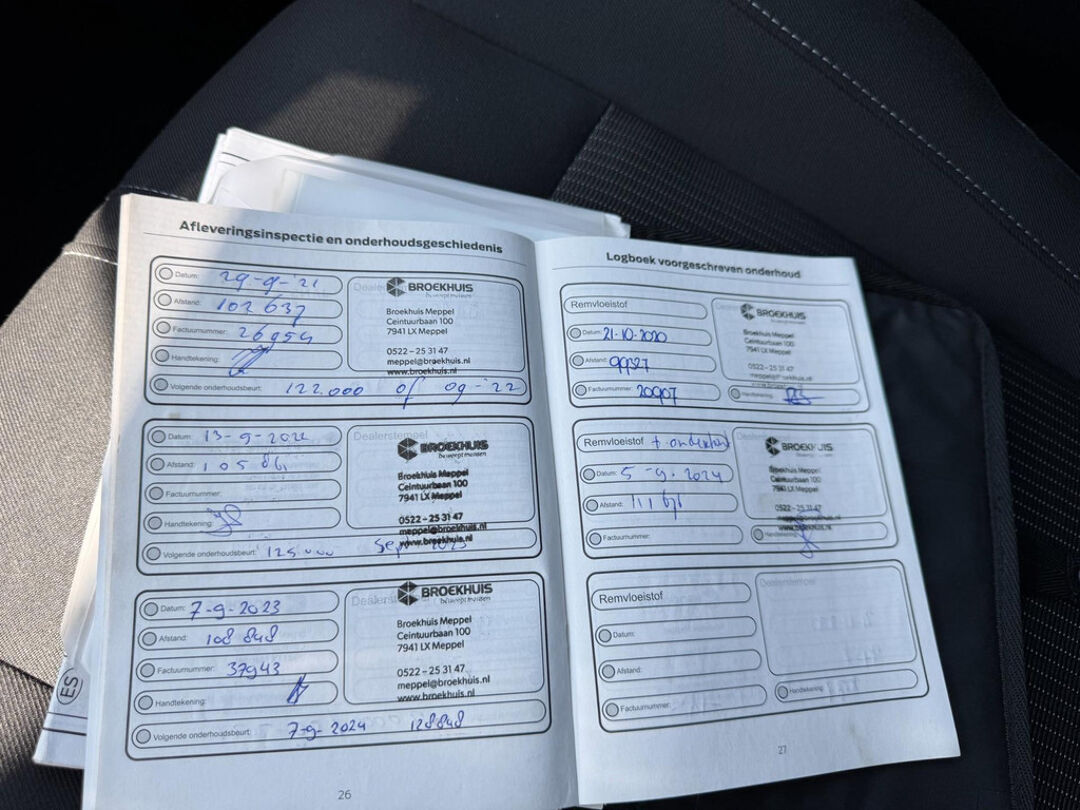 Afleveringsinspectie en onderhoudsgeschiedenis
Datum: 29-9-'21
Afstand: 102 637
Factuurnummer: 26954
Handtekening:
Volgende onderhoudsbeurt: 122.000 of 09-'22
BROEKHUIS
Broekhuis Meppel
Ceintuurbaan 100
7941 LX Meppel
0522 – 25 31 47
meppel@broekhuis.nl
www.broekhuis.nl
Datum: 13-9-2022
Afstand:
Factuurnummer:
Handtekening:
Volgende onderhoudsbeurt: 125.000 Sept 2023
Dealerstempel
BROEKHUIS
beweegt mensen
Broekhuis Meppel
Ceintuurbaan 100
7941 LX Meppel
0522 – 25 31 47
meppel@broekhuis.nl
www.broekhuis.nl
Datum: 7-9-2023
Afstand: 108 848
Factuurnummer: 37943
Handtekening:
Volgende onderhoudsbeurt: 7-9-2024 128848
BROEKHUIS
beweegt mensen
Broekhuis Meppel
Ceintuurbaan 100
7941 LX Meppel
0522 – 25 31 47
meppel@broekhuis.nl
www.broekhuis.nl
26
ES
Logboek voorgeschreven onderhoud
Remvloeistof
Datum: 21-10-2020
Afstand: 99327
Factuurnummer: 20907
BROEKHUIS
Broekhuis Meppel
Ceintuurbaan 100
7941 LX Meppel
0522 – 25 31 47
meppel@broekhuis.nl
www.broekhuis.nl
Handtekening:
Remvloeistof + onderhoud
Datum: 5-9-2024
Afstand: 111 676
Factuurnummer:
BROEKHUIS
Broekhuis Meppel
Ceintuurbaan 100
7941 LX Meppel
0522 – 25 31 47
meppel@broekhuis.nl
www.broekhuis.nl
Handtekening:
Remvloeistof
Datum:
Afstand:
Factuurnummer:
Dealerstempel
Handtekening:
27